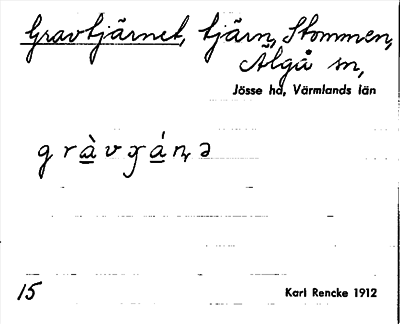 Gravtjärnet, tjärn, Stommen,
Älgå sn,
Jösse hd, Värmlands län
g r à v ɟ á n, ə
15
Karl Rencke 1912